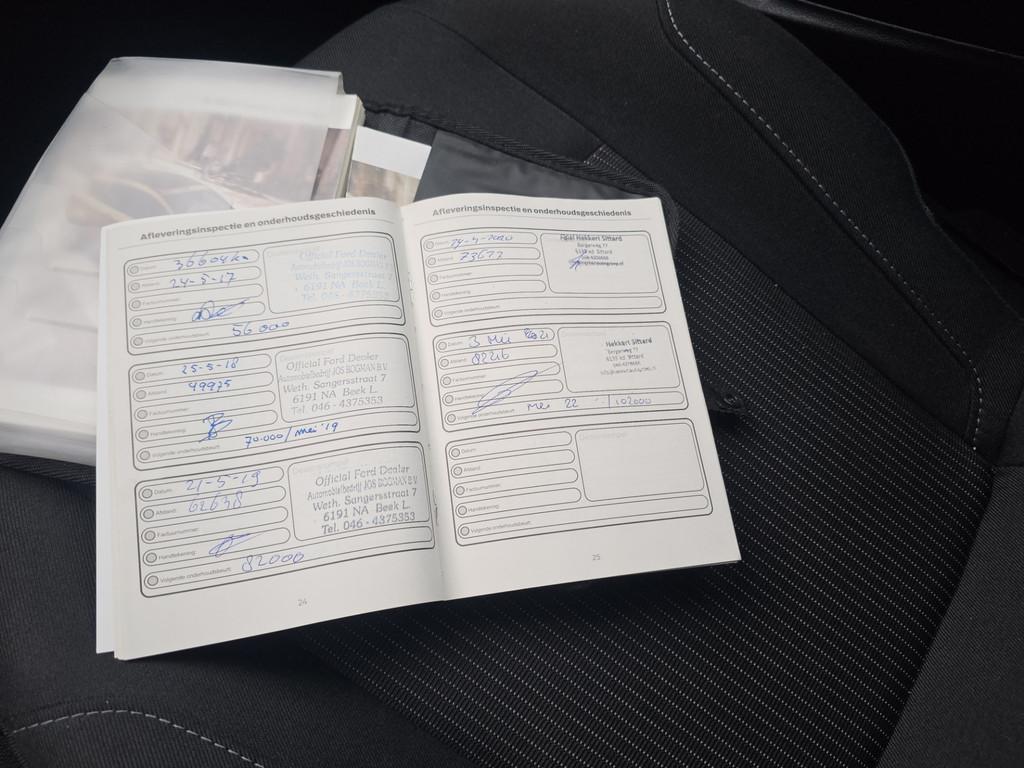 Afleveringsinspectie en onderhoudsgeschiedenis
Datum: 36604km
Afstand: 24-5-17
Factuurnummer:
Handtekening:
Volgende onderhoudsbeurt: 56000
Official Ford Dealer
Automobielbedrijf JOS BOGMAN B.V.
Weth. Sangersstraat 7
6191 NA Beek L.
Tel. 046 - 4375353
Datum: 25-5-18
Afstand: 49975
Factuurnummer:
Handtekening:
Volgende onderhoudsbeurt: 70.000/mei '19
Official Ford Dealer
Automobielbedrijf JOS BOGMAN B.V.
Weth. Sangersstraat 7
6191 NA Beek L.
Tel. 046 - 4375353
Datum: 21-5-19
Afstand: 62638
Factuurnummer:
Handtekening:
Volgende onderhoudsbeurt: 82000
Official Ford Dealer
Automobielbedrijf JOS BOGMAN B.V.
Weth. Sangersstraat 7
6191 NA Beek L.
Tel. 046 - 4375353
24
Afleveringsinspectie en onderhoudsgeschiedenis
Datum:
Afstand:
Factuurnummer:
Handtekening:
Volgende onderhoudsbeurt:
Hekkert Sittard
Bergerweg 77
Sittard
Datum: 3 Mei 2021
Afstand: 82216
Factuurnummer:
Handtekening:
Volgende onderhoudsbeurt: Mei 22 /102000
Hekkert Sittard
Bergerweg 77
Sittard
Datum:
Afstand:
Factuurnummer:
Handtekening:
Volgende onderhoudsbeurt:
25